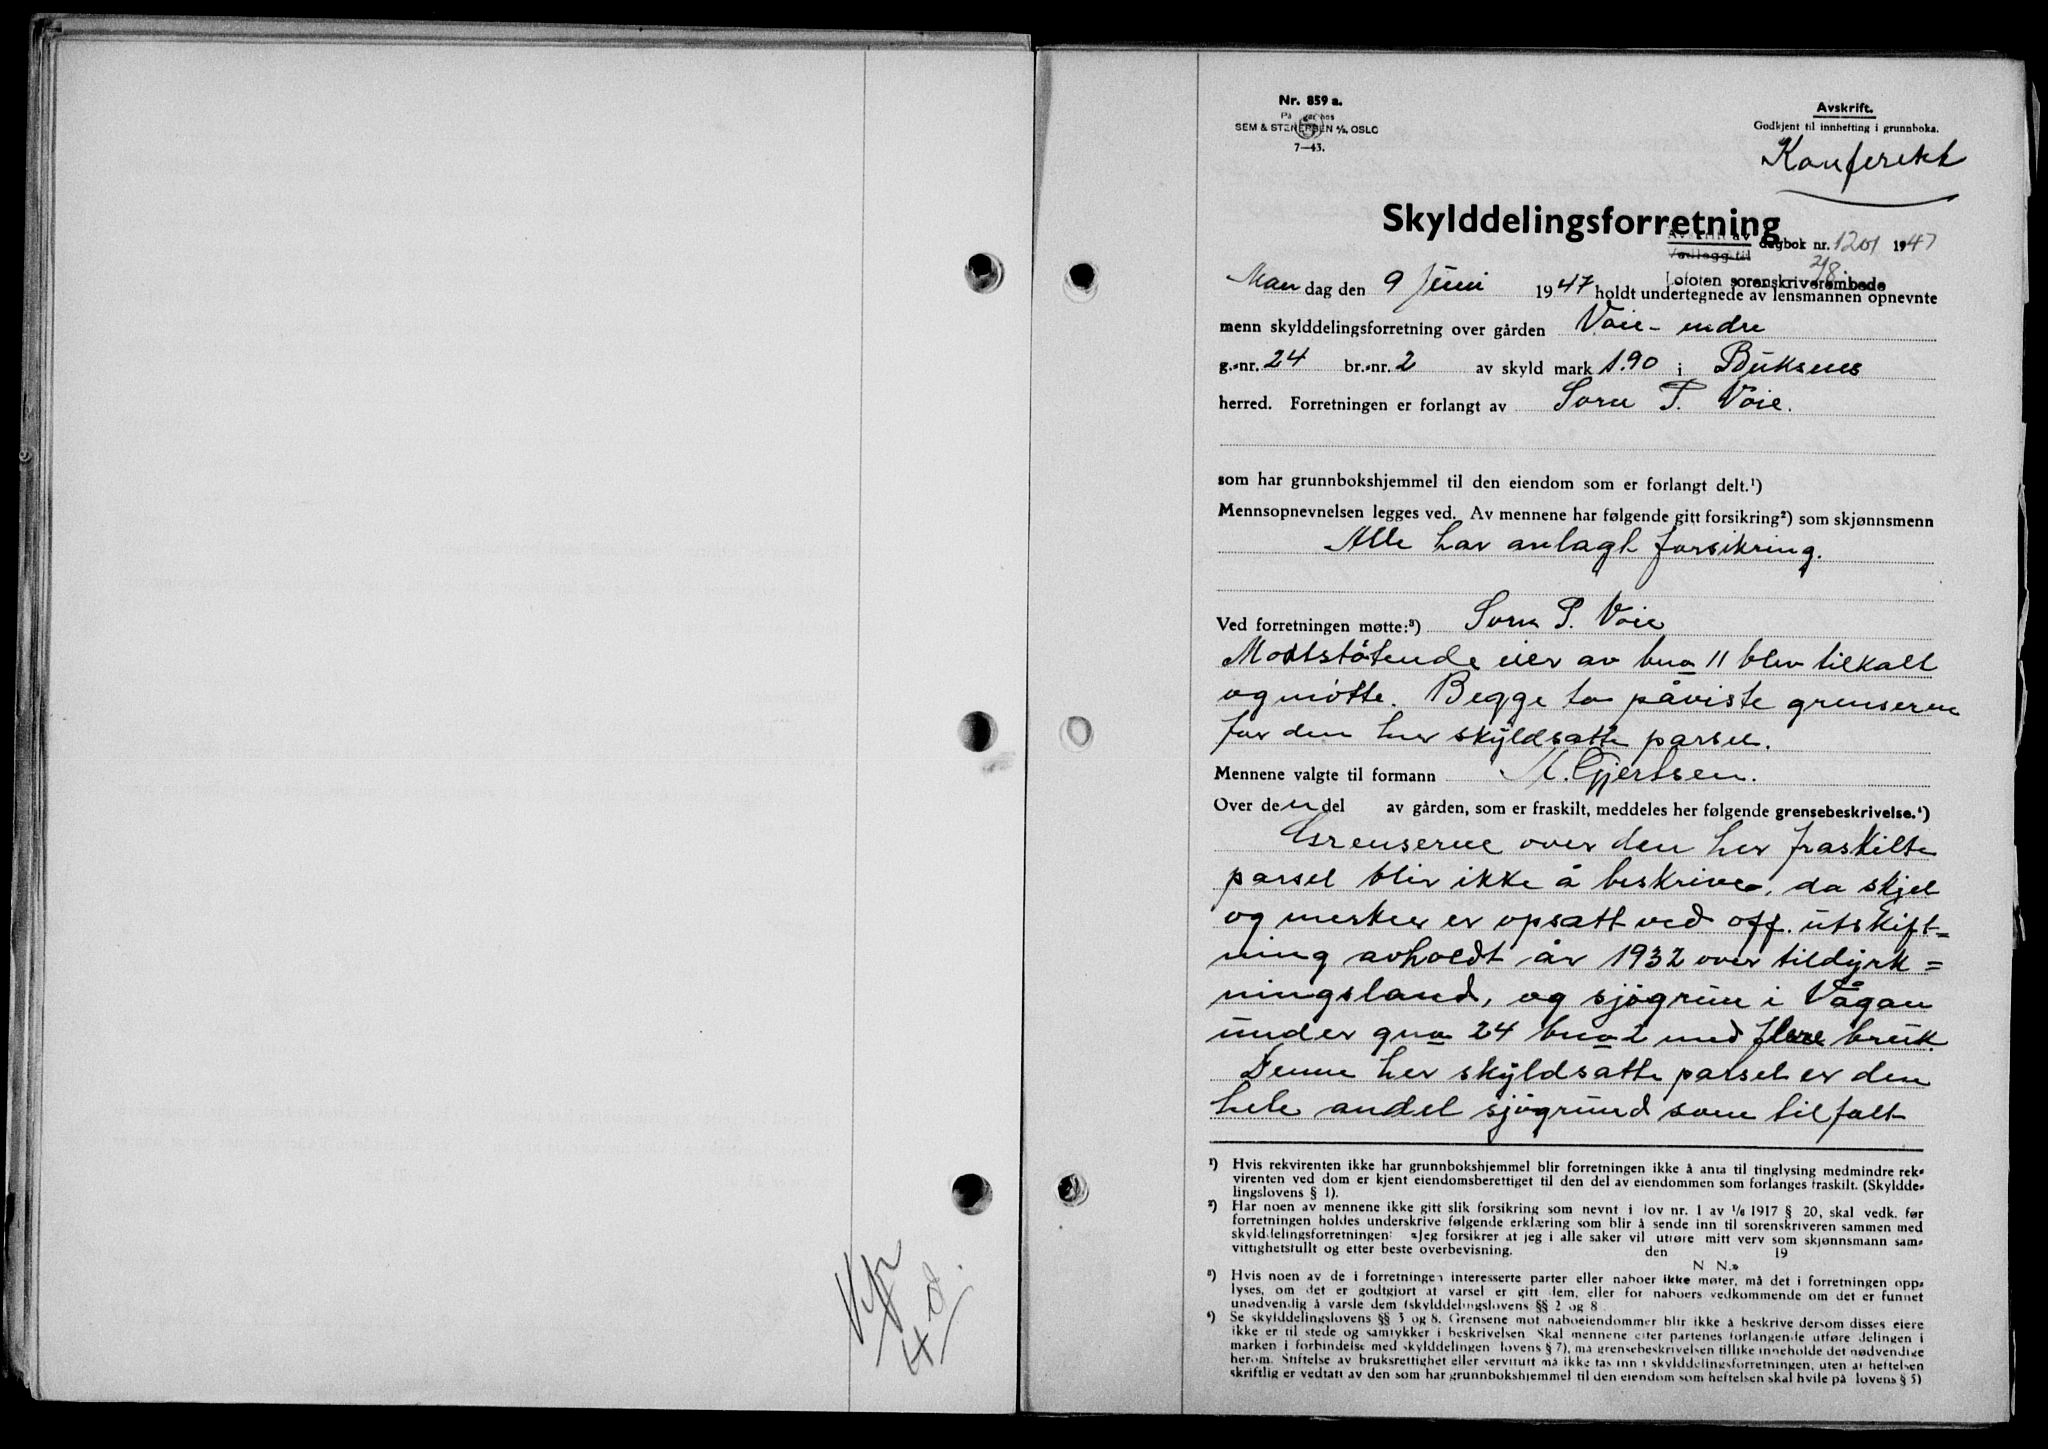 Nr. 859 a.
SEM & STENERSEN A/S, OSLO
7—43.
Avskrift.
Godkjent til innhefting i grunnboka.
Konferert
Skylddelingsforretning
Avskrift av
Vedlegg til
dagbok nr. 1201 1947
2/8
Lofoten sorenskriverembede
Mandag den 9 Juni 1947 holdt undertegnede av lensmannen opnevnte
menn skylddelingsforretning over gården Voie - indre
g.-nr. 24 br.-nr. 2 av skyld mark 1.90 i Buksnes
herred. Forretningen er forlangt av Sorn P. Voie.
som har grunnbokshjemmel til den eiendom som er forlangt delt.¹)
Mennsopnevnelsen legges ved. Av mennene har følgende gitt forsikring²) som skjønnsmenn
Alle har avlagt forsikring.
Ved forretningen møtte:³) Sorn P. Voie
Motstøtende eier av bno 11 blev tilkalt
og møtte. Begge to påviste grenserne
for den her skyldsatte parsel.
Mennene valgte til formann M. Gjertsen.
Over den del av gården, som er fraskilt, meddeles her følgende grensebeskrivelse.⁴)
Grenserne over den her fraskilte
parsel blir ikke å beskrive, da skjel
og merker er opsatt ved off. utskift=
ning avholdt år 1932 over tildyrk=
ningsland, og sjøgrun i Vågan
under gno 24 bno 2 med flere bruk.
Denne her skyldsatte parsel er den
hele andel sjøgrund som tilfalt
¹) Hvis rekvirenten ikke har grunnbokshjemmel blir forretningen ikke å anta til tinglysing medmindre rek-
virenten ved dom er kjent eiendomsberettiget til den del av eiendommen som forlanges fraskilt. (Skyldde-
lingslovens § 1).
²) Har noen av mennene ikke gitt slik forsikring som nevnt i lov nr. 1 av 1/6 1917 § 20, skal vedk. før
forretningen holdes underskrive følgende erklæring som blir å sende inn til sorenskriveren sammen med
skylddelingsforretningen: «Jeg forsikrer at jeg i alle saker vil utføre mitt verv som skjønnsmann sam-
vittighetsfullt og etter beste overbevisning. den 19
N. N.»
³) Hvis noen av de i forretningen interesserte parter eller naboer ikke møter, må det i forretningen opp-
lyses, om det er godtgjort at varsel er gitt dem, eller for naboers vedkommende om det er funnet
unødvendig å varsle dem (skylddelingslovens §§ 2 og 8
⁴) Se skylddelingslovens §§ 3 og 8. Grensene mot naboeiendommer blir ikke å beskrive dersom disses eiere
ikke er til stede og samtykker i beskrivelsen. Skal mennene etter partenes forlangende utføre delingen i
marken i forbindelse med skylddelingen (lovens § 7), må grensebeskrivelsen tillike inneholde det nødvendige
herom. Stiftelse av bruksrettighet eller servitutt må ikke tas inn i skylddelingsforretningen, uten at heftelsen
skriftlig er vedtatt av den som har grunnbokshjemmel til den eiendom som heftelsen skal hvile på (lovens § 5)